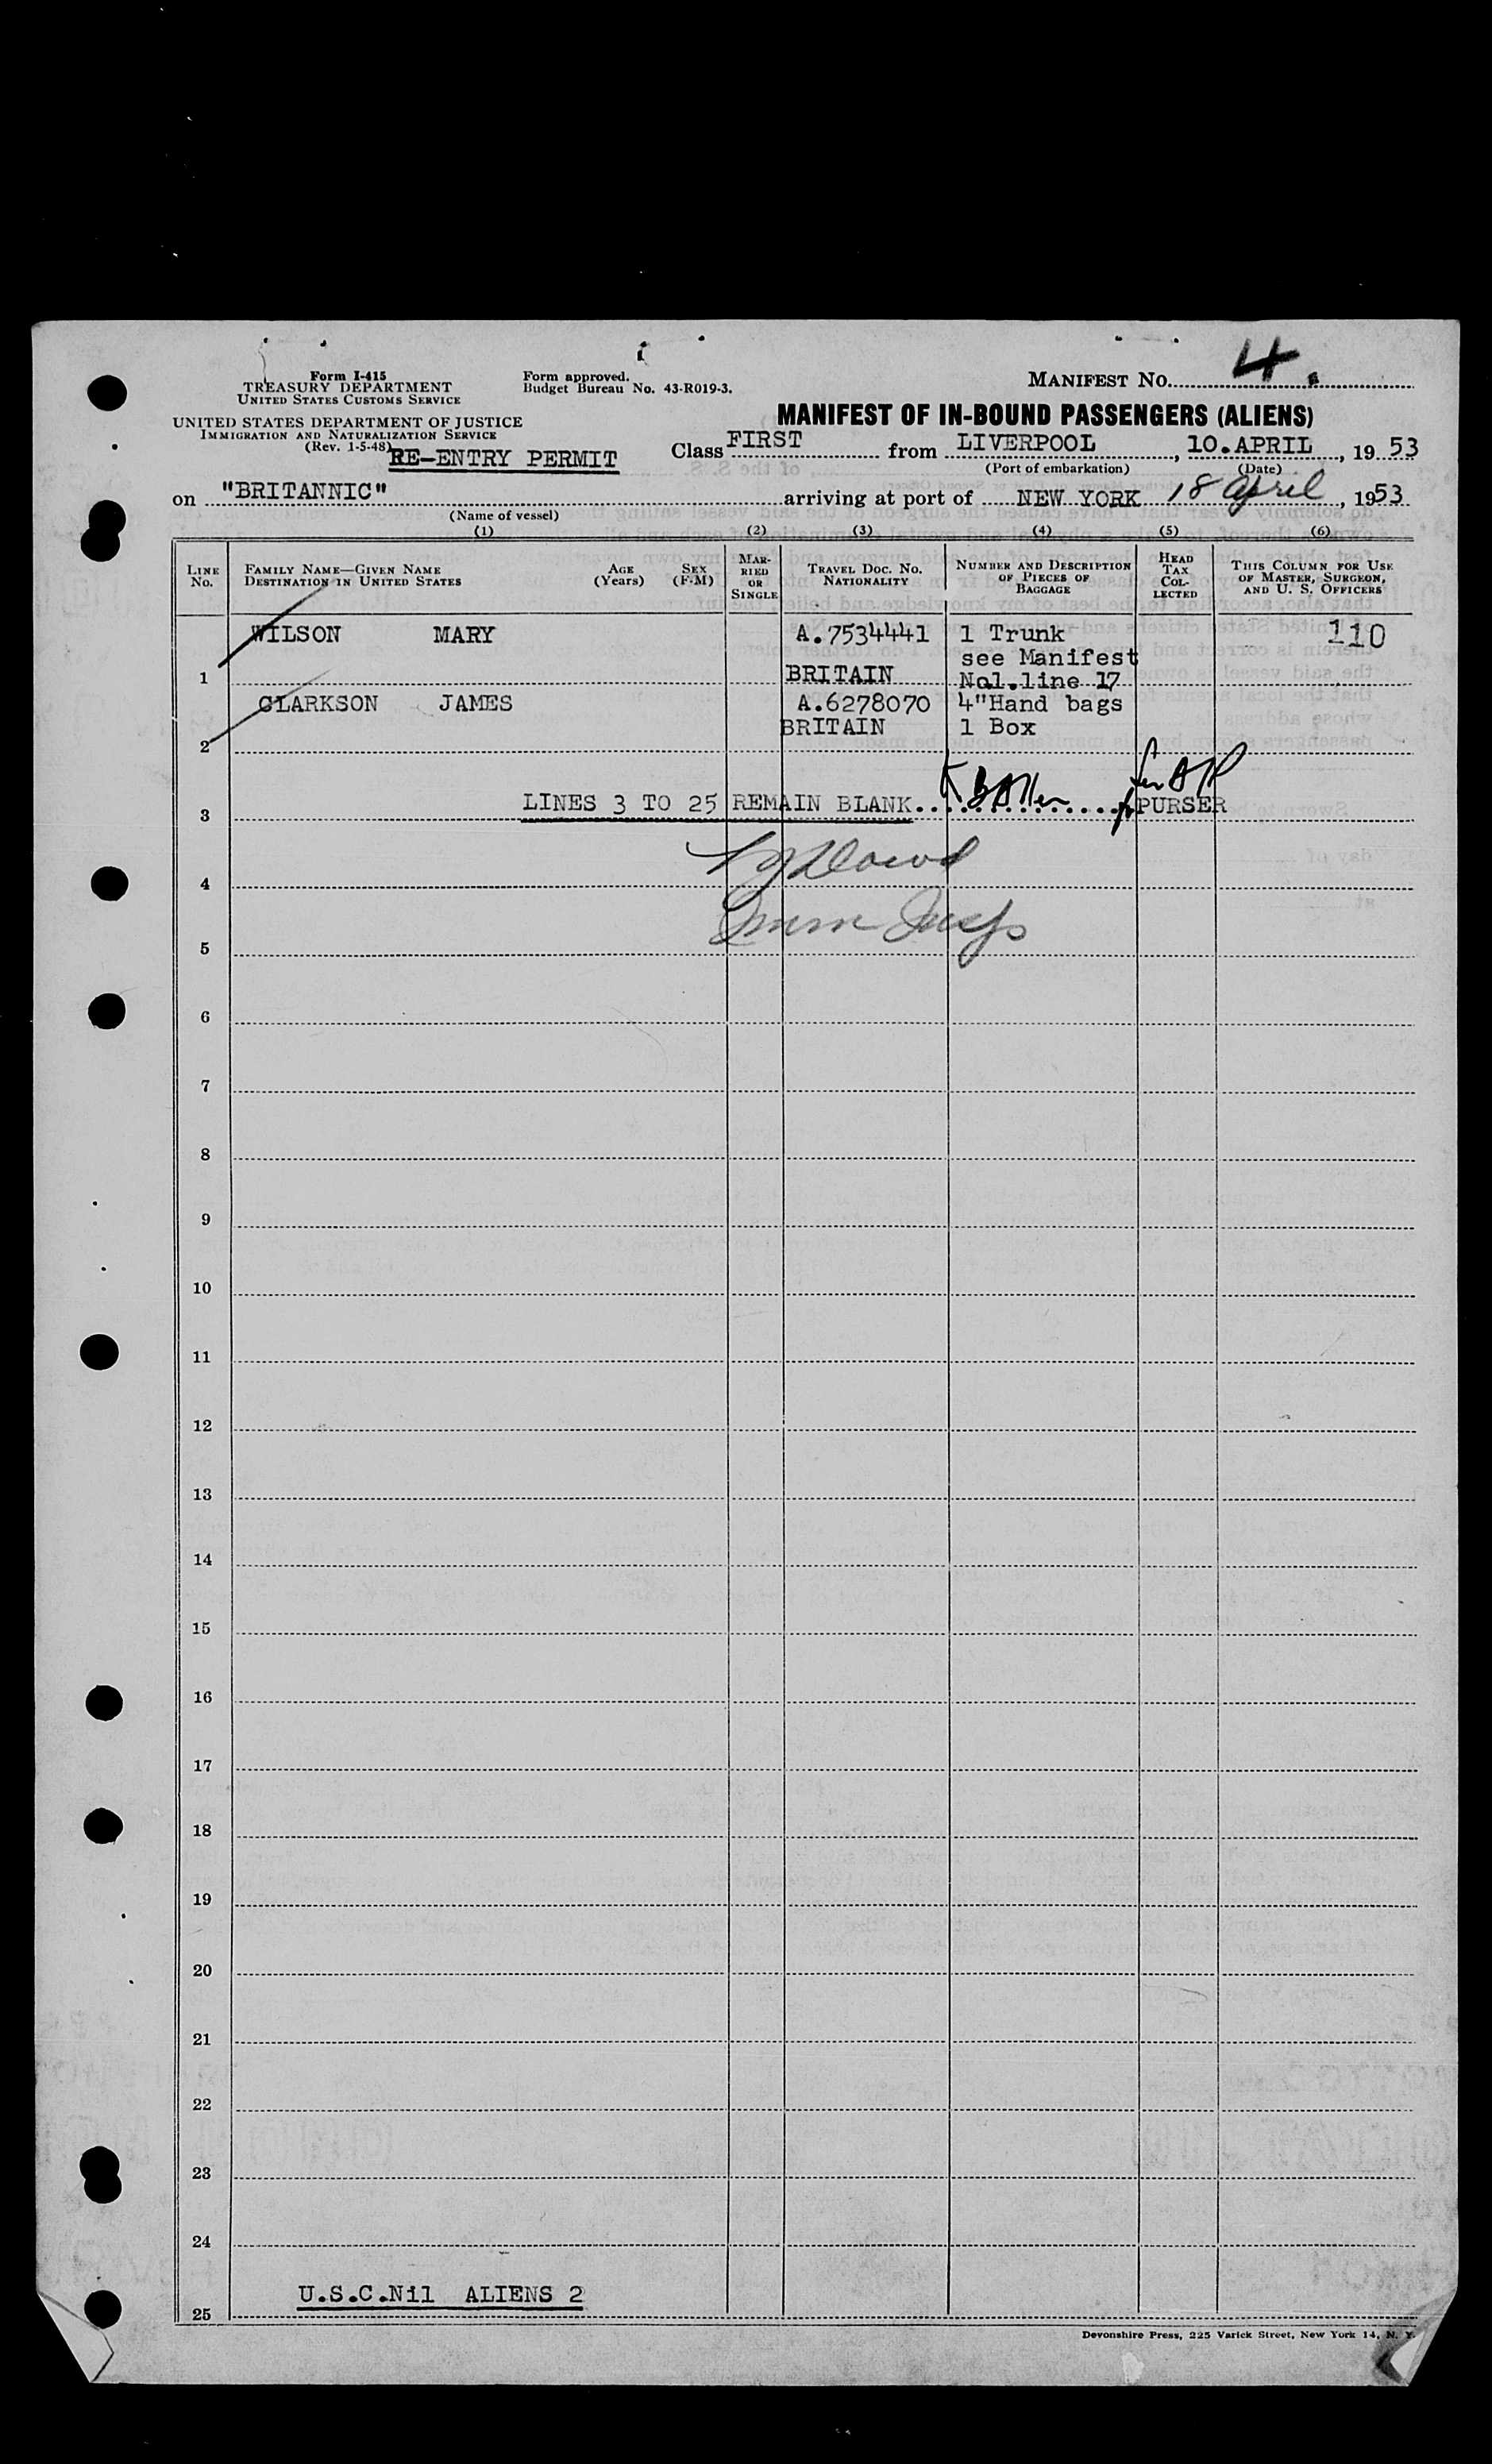 Form I-415
TREASURY DEPARTMENT
UNITED STATES CUSTOMS SERVICE
UNITED STATES DEPARTMENT OF JUSTICE
IMMIGRATION AND NATURALIZATION SERVICE
(Rev. 1-5-48)
RE-ENTRY PERMIT
Form approved.
Budget Bureau No. 43-R019-3.
MANIFEST NO. 4.
MANIFEST OF IN-BOUND PASSENGERS (ALIENS)
Class FIRST from LIVERPOOL, 10.APRIL, 1953
(Port of embarkation) (Date)
on "BRITANNIC" arriving at port of NEW YORK 18 April, 1953
(Name of vessel)
(1) (2) (3) (4) (5) (6)
LINE NO.
FAMILY NAME—GIVEN NAME
DESTINATION IN UNITED STATES
AGE (Years)
SEX (F-M)
MARRIED OR SINGLE
TRAVEL DOC. NO. NATIONALITY
NUMBER AND DESCRIPTION OF PIECES OF BAGGAGE
HEAD TAX COLLECTED
THIS COLUMN FOR USE OF MASTER, SURGEON, AND U. S. OFFICERS
WILSON MARY A.7534441 1 Trunk 110
see Manifest
1 BRITAIN No1.line 17
CLARKSON JAMES A.6278070 4"Hand bags
BRITAIN 1 Box
2
3 LINES 3 TO 25 REMAIN BLANK. PURSER
4
Imm Insp
5
6
7
8
9
10
11
12
13
14
15
16
17
18
19
20
21
22
23
24
U.S.C.Nil ALIENS 2
25
Devonshire Press, 225 Varick Street, New York 14, N. Y.